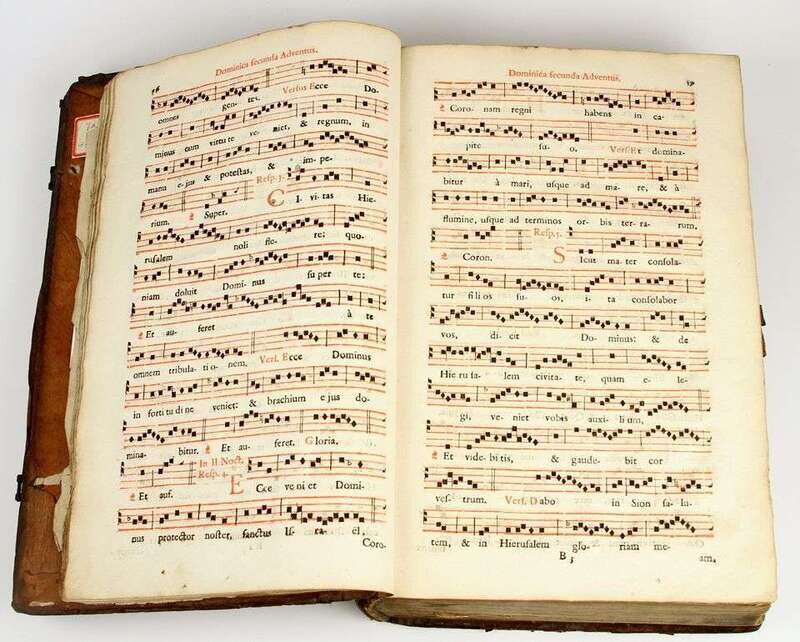 Dominica secunda Adventus.
omnes gentes. Versus Ecce Do-
minus cum virtute veniet, & regnum, in
manu ejus & potestas, & impe-
Resp. 3.
rium. Super. CIvitas Hie-
rusalem noli flere: quo-
niam doluit Dominus super te:
Et auferet à te
omnem tribulationem. Vers. Ecce Dominus
in fortitudine veniet: & brachium ejus do-
minabitur. Et auferet. Gloria.
In II Noct.
Resp. 4.
Et auf. ECce veniet Domi-
nus protector noster, sanctus Israël,
Coro-
Dominica secunda Adventus.
Coronam regni habens in ca-
pite suo. Vers. Et domina-
bitur à mari, usque ad mare, & à
flumine, usque ad terminos orbis terrarum.
Resp. 5.
Coron. SIcut mater consola-
tur filios suos, ita consolabor
vos, dicit Dominus: & de
Hierusalem civitate, quam ele-
gi, veniet vobis auxilium,
Et videbitis, & gaudebit cor
vestrum. Vers. Dabo in Sion salu-
tem, & in Hierusalem gloriam me-
B 3 am,